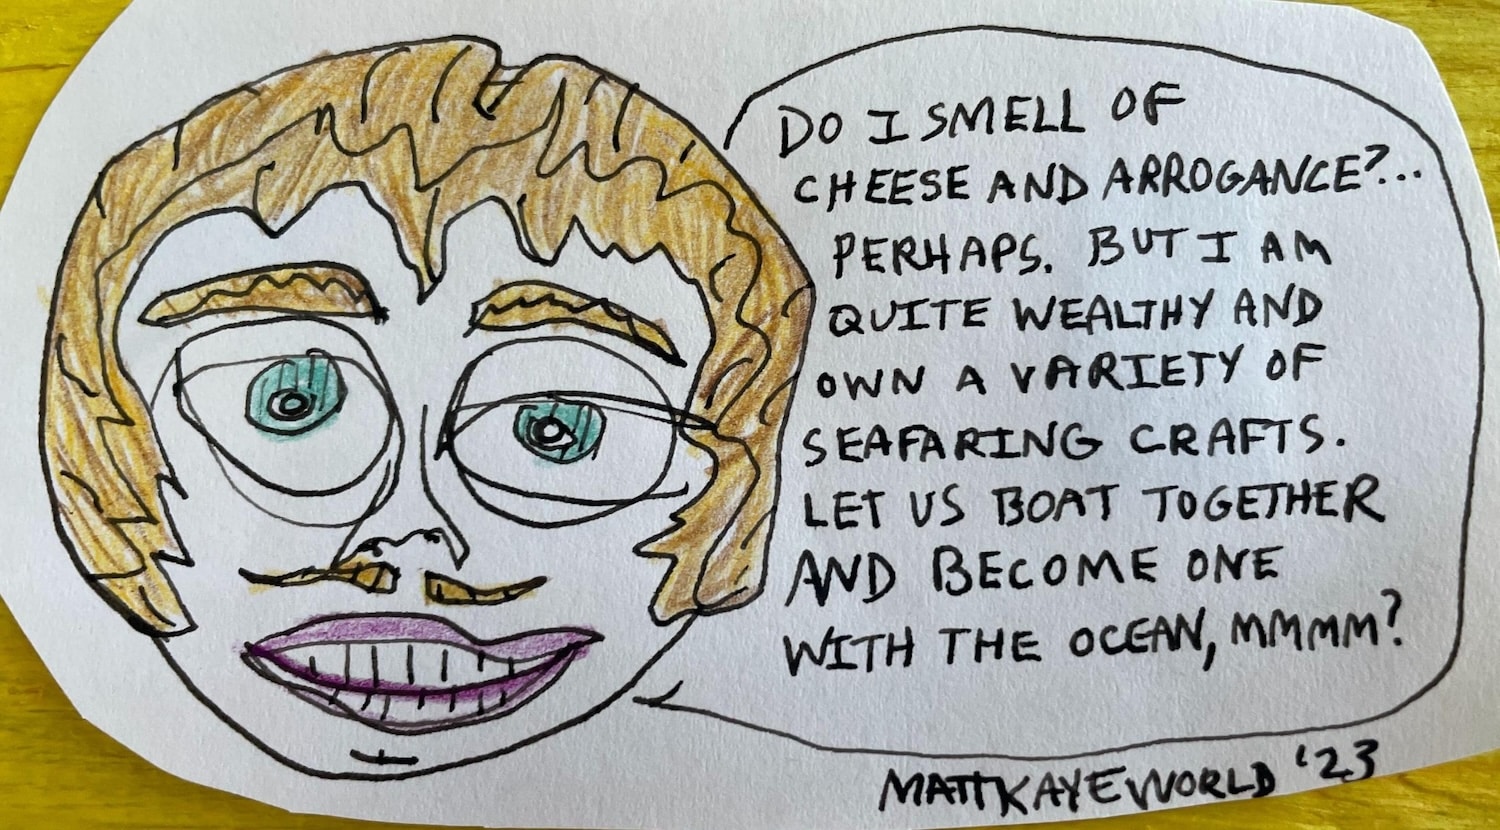 DO I SMELL OF
CHEESE AND ARROGANCE?...
PERHAPS. BUT I AM
QUITE WEALTHY AND
OWN A VARIETY OF
SEAFARING CRAFTS.
LET US BOAT TOGETHER
AND BECOME ONE
WITH THE OCEAN, MMMM?
MATTKAYEWORLD '23